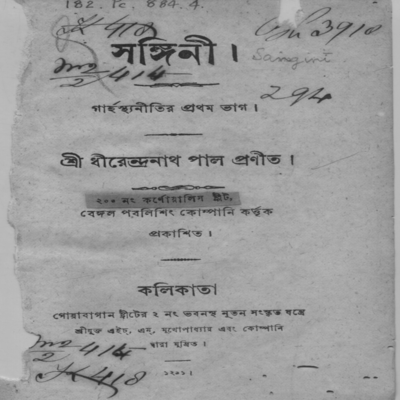 182. Jc. 884. 4.
সঙ্গিনী।
Sangini
294
গার্হস্থ্যনীতির প্রথম ভাগ।
শ্রী ধীরেন্দ্রনাথ পাল প্রণীত।
২০০ নং কর্ণওয়ালিস ষ্ট্রীট,
বেঙ্গল পবলিশিং কোম্পানি কর্ত্তৃক
প্রকাশিত।
কলিকাতা
গোয়াবাগান ষ্ট্রীটের ২ নং ভবনস্থ নূতন সংস্কৃত যন্ত্রে
শ্রীযুক্ত এইচ্, এম্, মুখোপাধ্যায় এবং কোম্পানি
দ্বারা মুদ্রিত।
১২৯১।